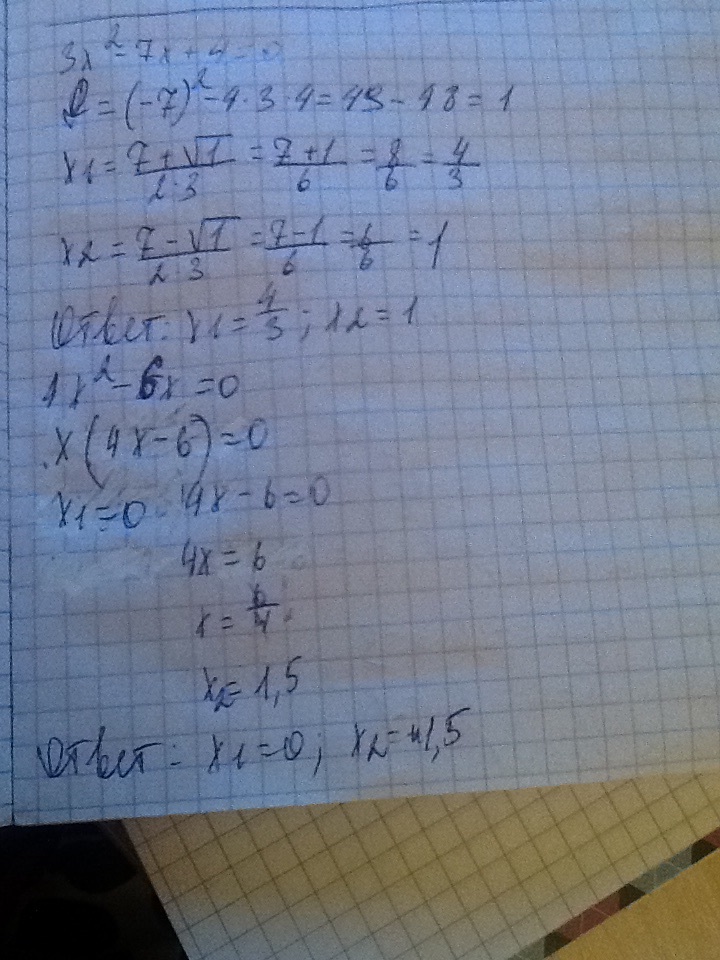 3x² - 7x + 4 = 0
D = (-7)² - 4 · 3 · 4 = 49 - 48 = 1
x1 = (7 + √1)/(2·3) = (7 + 1)/6 = 8/6 = 4/3
x2 = (7 - √1)/(2·3) = (7 - 1)/6 = 6/6 = 1
Ответ: x1 = 4/3; x2 = 1
4x² - 6x = 0
x(4x - 6) = 0
x1 = 0 4x - 6 = 0
4x = 6
x = 6/4
x2 = 1,5
Ответ: x1 = 0; x2 = 1,5